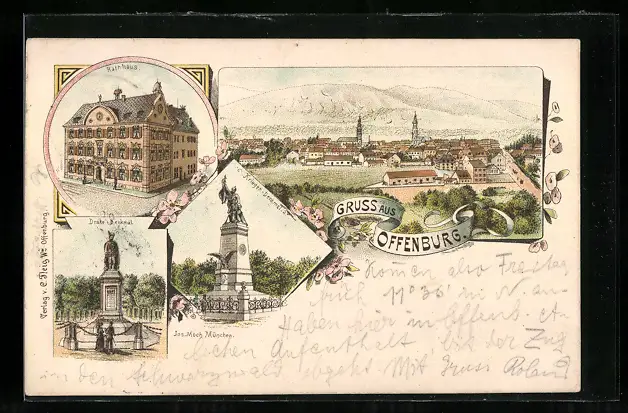 Rathhaus
GRUSS AUS
OFFENBURG.
Drake-Denkmal
Krieger-Denkmal
Jos. Moch München.
Verlag v. C. Wwe Offenburg.
Komen also Freitag
früh 11° 36' in N an
Haben hier in Offenb. et-
Aufenthalt bis der Zug
in den Schwarzwald abgeht Mit Gruss Roland